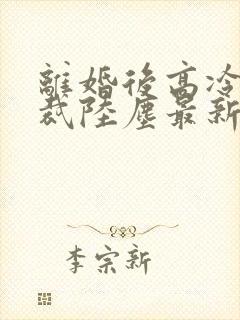 離婚後高冷
裁陸塵最新
李宗新